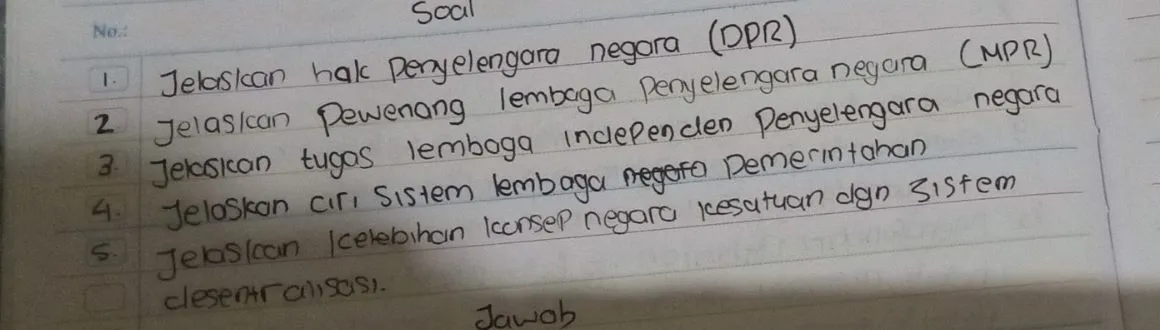 Soal
No.:
1. Jelaskan hak penyelengara negara (DPR)
2 Jelaskan Pewenang lembaga penyelengara negara (MPR)
3. Jelaskan tugas lembaga independen Penyelengara negara
4. Jelaskan ciri sistem lembaga negara pemerintahan
5. Jelaskan kelebihan konsep negara kesatuan dgn sistem
desentralisasi.
Jawab